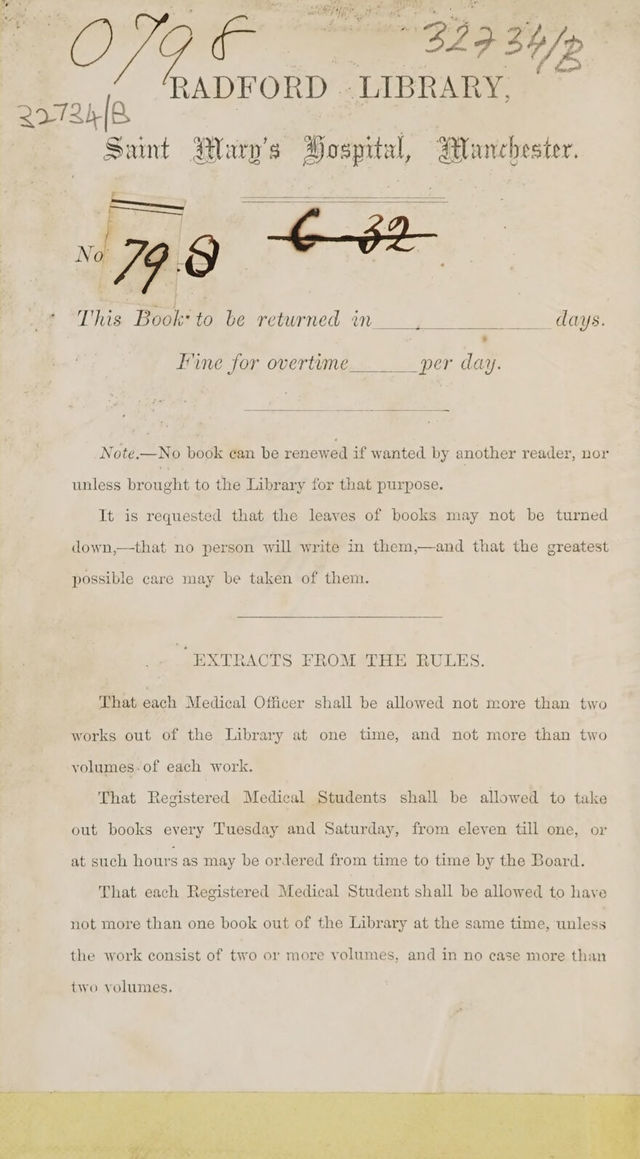 0798
32734/B
RADFORD LIBRARY,
32734/B
Saint Mary's Hospital, Manchester.
C 32
No 798
This Book to be returned in____________days.
Fine for overtime_____per day.
Note.—No book can be renewed if wanted by another reader, nor
unless brought to the Library for that purpose.
It is requested that the leaves of books may not be turned
down,—that no person will write in them,—and that the greatest
possible care may be taken of them.
EXTRACTS FROM THE RULES.
That each Medical Officer shall be allowed not more than two
works out of the Library at one time, and not more than two
volumes of each work.
That Registered Medical Students shall be allowed to take
out books every Tuesday and Saturday, from eleven till one, or
at such hours as may be ordered from time to time by the Board.
That each Registered Medical Student shall be allowed to have
not more than one book out of the Library at the same time, unless
the work consist of two or more volumes, and in no case more than
two volumes.